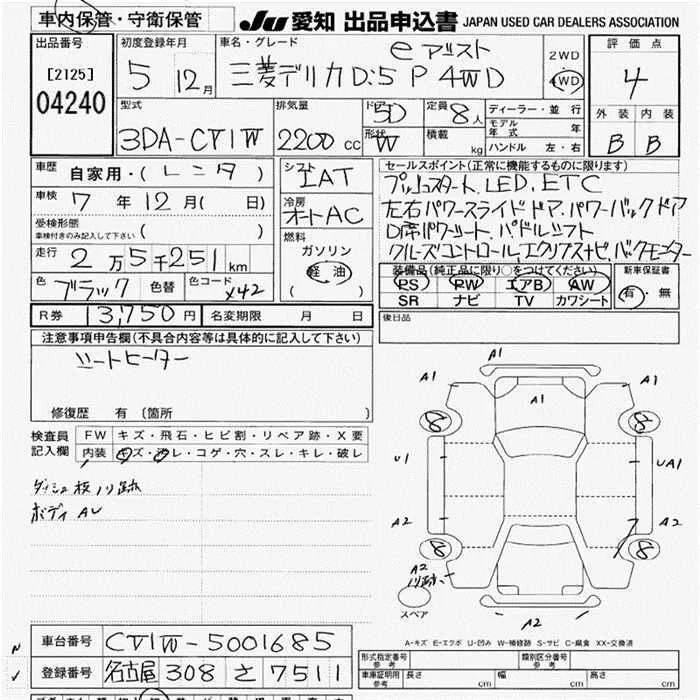 車内保管・守衛保管 JU 愛知 出品申込書 JAPAN USED CAR DEALERS ASSOCIATION
出品番号 初度登録年月 車名・グレード 2WD 評価点
[2125] 5 12月 三菱デリカD:5 P 4WD 4WD 4
04240
型式 排気量 ドア 5D 定員 8人 ディーラー・並行 外装 内装
3DA-CV1W 2200cc 形状 W 積載 kg モデル年式 年 B B
ハンドル 左・右
車歴 自家用・(レンタ) シフト IAT セールスポイント(正常に機能するものに限ります)
車検 7年12月(日) 冷房 オートAC プッシュスタート、LED、ETC
受検形態 車検付きのみ記入して下さい ( ) 燃料 左右パワースライドドア、パワーバックドア
走行 2万5千251km ガソリン D席パワーシート、パドルシフト
軽油 クルーズコントロール、エクリプスナビ、バックモニター
色 ブラック 色替 色コード X42 ( )
装備品(純正品に限り○をつけてください) 新車保証書
PS PW エアB AW 有・無
SR ナビ TV カワシート
R券 13,750円 名変期限 月 日 後日品
注意事項申告欄(不具合内容等は具体的に記入して下さい)
シートヒーター
修復歴 有(箇所 )
検査員記入欄 FW キズ・飛石・ヒビ割・リペア跡・X要
内装 キズ・汚レ・コゲ・穴・スレ・キレ・破レ
ダッシュ板ノリ跡
ボディAU
A1
A1 A1 A1
8 8
U1 UA1
A2 A2
8 8
A2
ノリ跡
スペア A2
A-キズ E-エクボ U-凹み W-補修跡 S-サビ C-腐食 XX-交換済
車台番号 CV1W-5001685
登録番号 名古屋 308 さ 7511
型式指定番号 参考 類別区分番号 参考
車庫証明用 参考 長さ cm 幅 cm 高さ cm